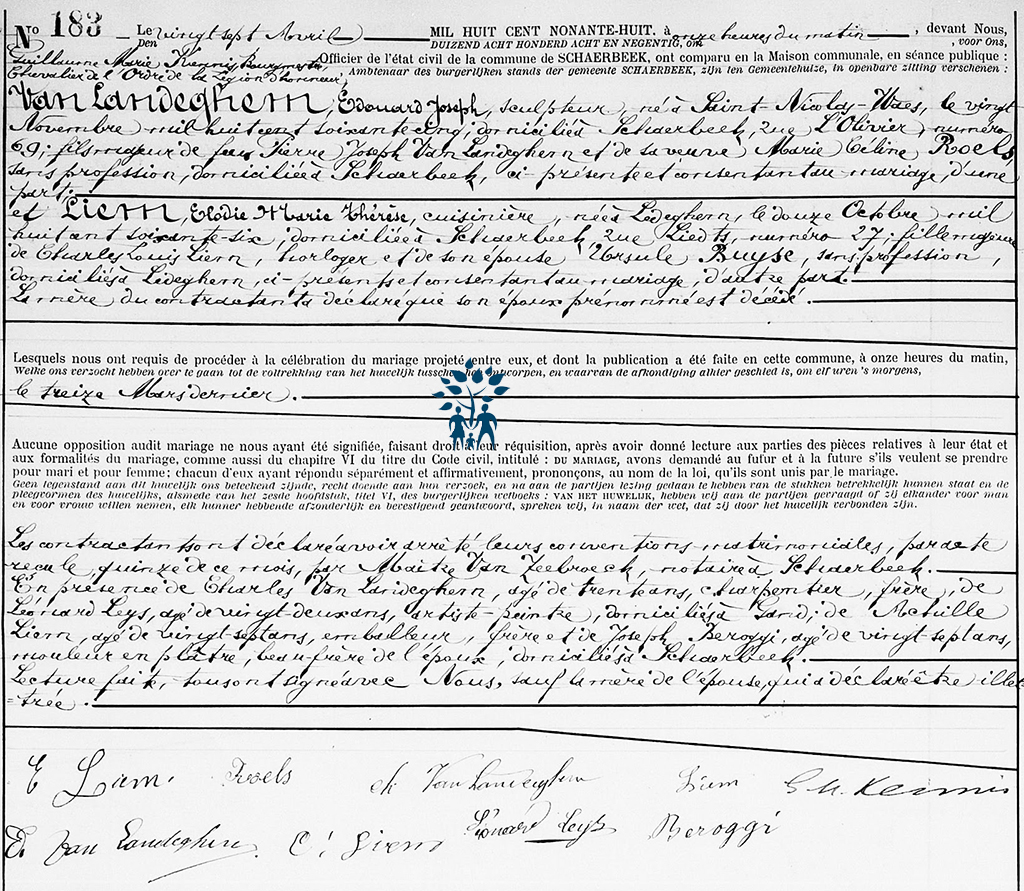 No 183 Le vingt sept Avril MIL HUIT CENT NONANTE-HUIT, à onze heures du matin, devant Nous,
Den DUIZEND ACHT HONDERD ACHT EN NEGENTIG, om , voor Ons,
Guillaume Marie Kennis Bourgmestre Officier de l'état civil de la commune de SCHAERBEEK, ont comparu en la Maison communale, en séance publique :
Chevalier de l'Ordre de la Légion d'honneur Ambtenaar des burgerlijken stands der gemeente SCHAERBEEK, zijn ten Gemeentehuize, in openbare zitting verschenen :
Van Landeghem, Édouard Joseph, sculpteur, né à Saint-Nicolas-Waes, le vingt
Novembre mil huit cent soixante cinq, domicilié à Schaerbeek, rue L'Olivier, numéro
69; fils majeur de feu Pierre Joseph Van Landeghem et de sa veuve Marie Céline Roels
sans profession, domiciliée à Schaerbeek, ci-présente et consentant au mariage, d'une
part;
et Liem, Elodie Marie Thérèse, cuisinière, née à Ledeghem, le douze Octobre mil
huit cent soixante-six, domiciliée à Schaerbeek, rue Liedts, numéro 27; fille majeure
de Charles Louis Liem, horloger et de son épouse Ursule Buyse, sans profession,
domiciliés à Ledeghem, ci-présents et consentant au mariage, d'autre part.
La mère du contractant a déclaré que son époux prénommé est décédé.
Lesquels nous ont requis de procéder à la célébration du mariage projeté entre eux, et dont la publication a été faite en cette commune, à onze heures du matin,
Welke ons verzocht hebben over te gaan tot de voltrekking van het huwelijk tusschen hen ontworpen, en waarvan de afkondiging alhier geschied is, om elf uren 's morgens,
le treize Mars dernier.
Aucune opposition audit mariage ne nous ayant été signifiée, faisant droit à leur réquisition, après avoir donné lecture aux parties des pièces relatives à leur état et
aux formalités du mariage, comme aussi du chapitre VI du titre du Code civil, intitulé : DU MARIAGE, avons demandé au futur et à la future s'ils veulent se prendre
pour mari et pour femme: chacun d'eux ayant répondu séparément et affirmativement, prononçons, au nom de la loi, qu'ils sont unis par le mariage.
Geen tegenstand aan dit huwelijk ons beteekend zijnde, recht doende aan hun verzoek, en na aan de partijen lezing gedaan te hebben van de stukken betrekkelijk hunnen staat en de
pleegvormen des huwelijks, alsmede van het zesde hoofdstuk, titel VI, des burgerlijken wetboeks : VAN HET HUWELIJK, hebben wij aan de partijen gevraagd of zij elkander voor man
en voor vrouw willen nemen, elk hunner hebbende afzonderlijk en bevestigend geantwoord, spreken wij, in naam der wet, dat zij door het huwelijk verbonden zijn.
Les contractants ont déclaré avoir arrêté leurs conventions matrimoniales, par acte
reçu le quinze de ce mois, par Maître Van Zeebroeck, notaire à Schaerbeek.
En présence de Charles Van Landeghem, âgé de trente ans, charpentier, frère, de
Léonard Leys, âgé de vingt deux ans, artiste-peintre, domicilié à Gand; de Achille
Liem, âgé de vingt sept ans, emballeur, frère et de Joseph Beroggi, âgé de vingt sept ans,
mouleur en plâtre, beau-frère de l'époux; domiciliés à Schaerbeek.
Lecture faite, tous ont signé avec Nous, sauf la mère de l'épouse, qui a déclaré être illet-
=trée.
E Liem. Roels ch Van Landeghem Liem G M. Kennis
Ed. Van Landeghem. C. Liem Léonard Leys Beroggi